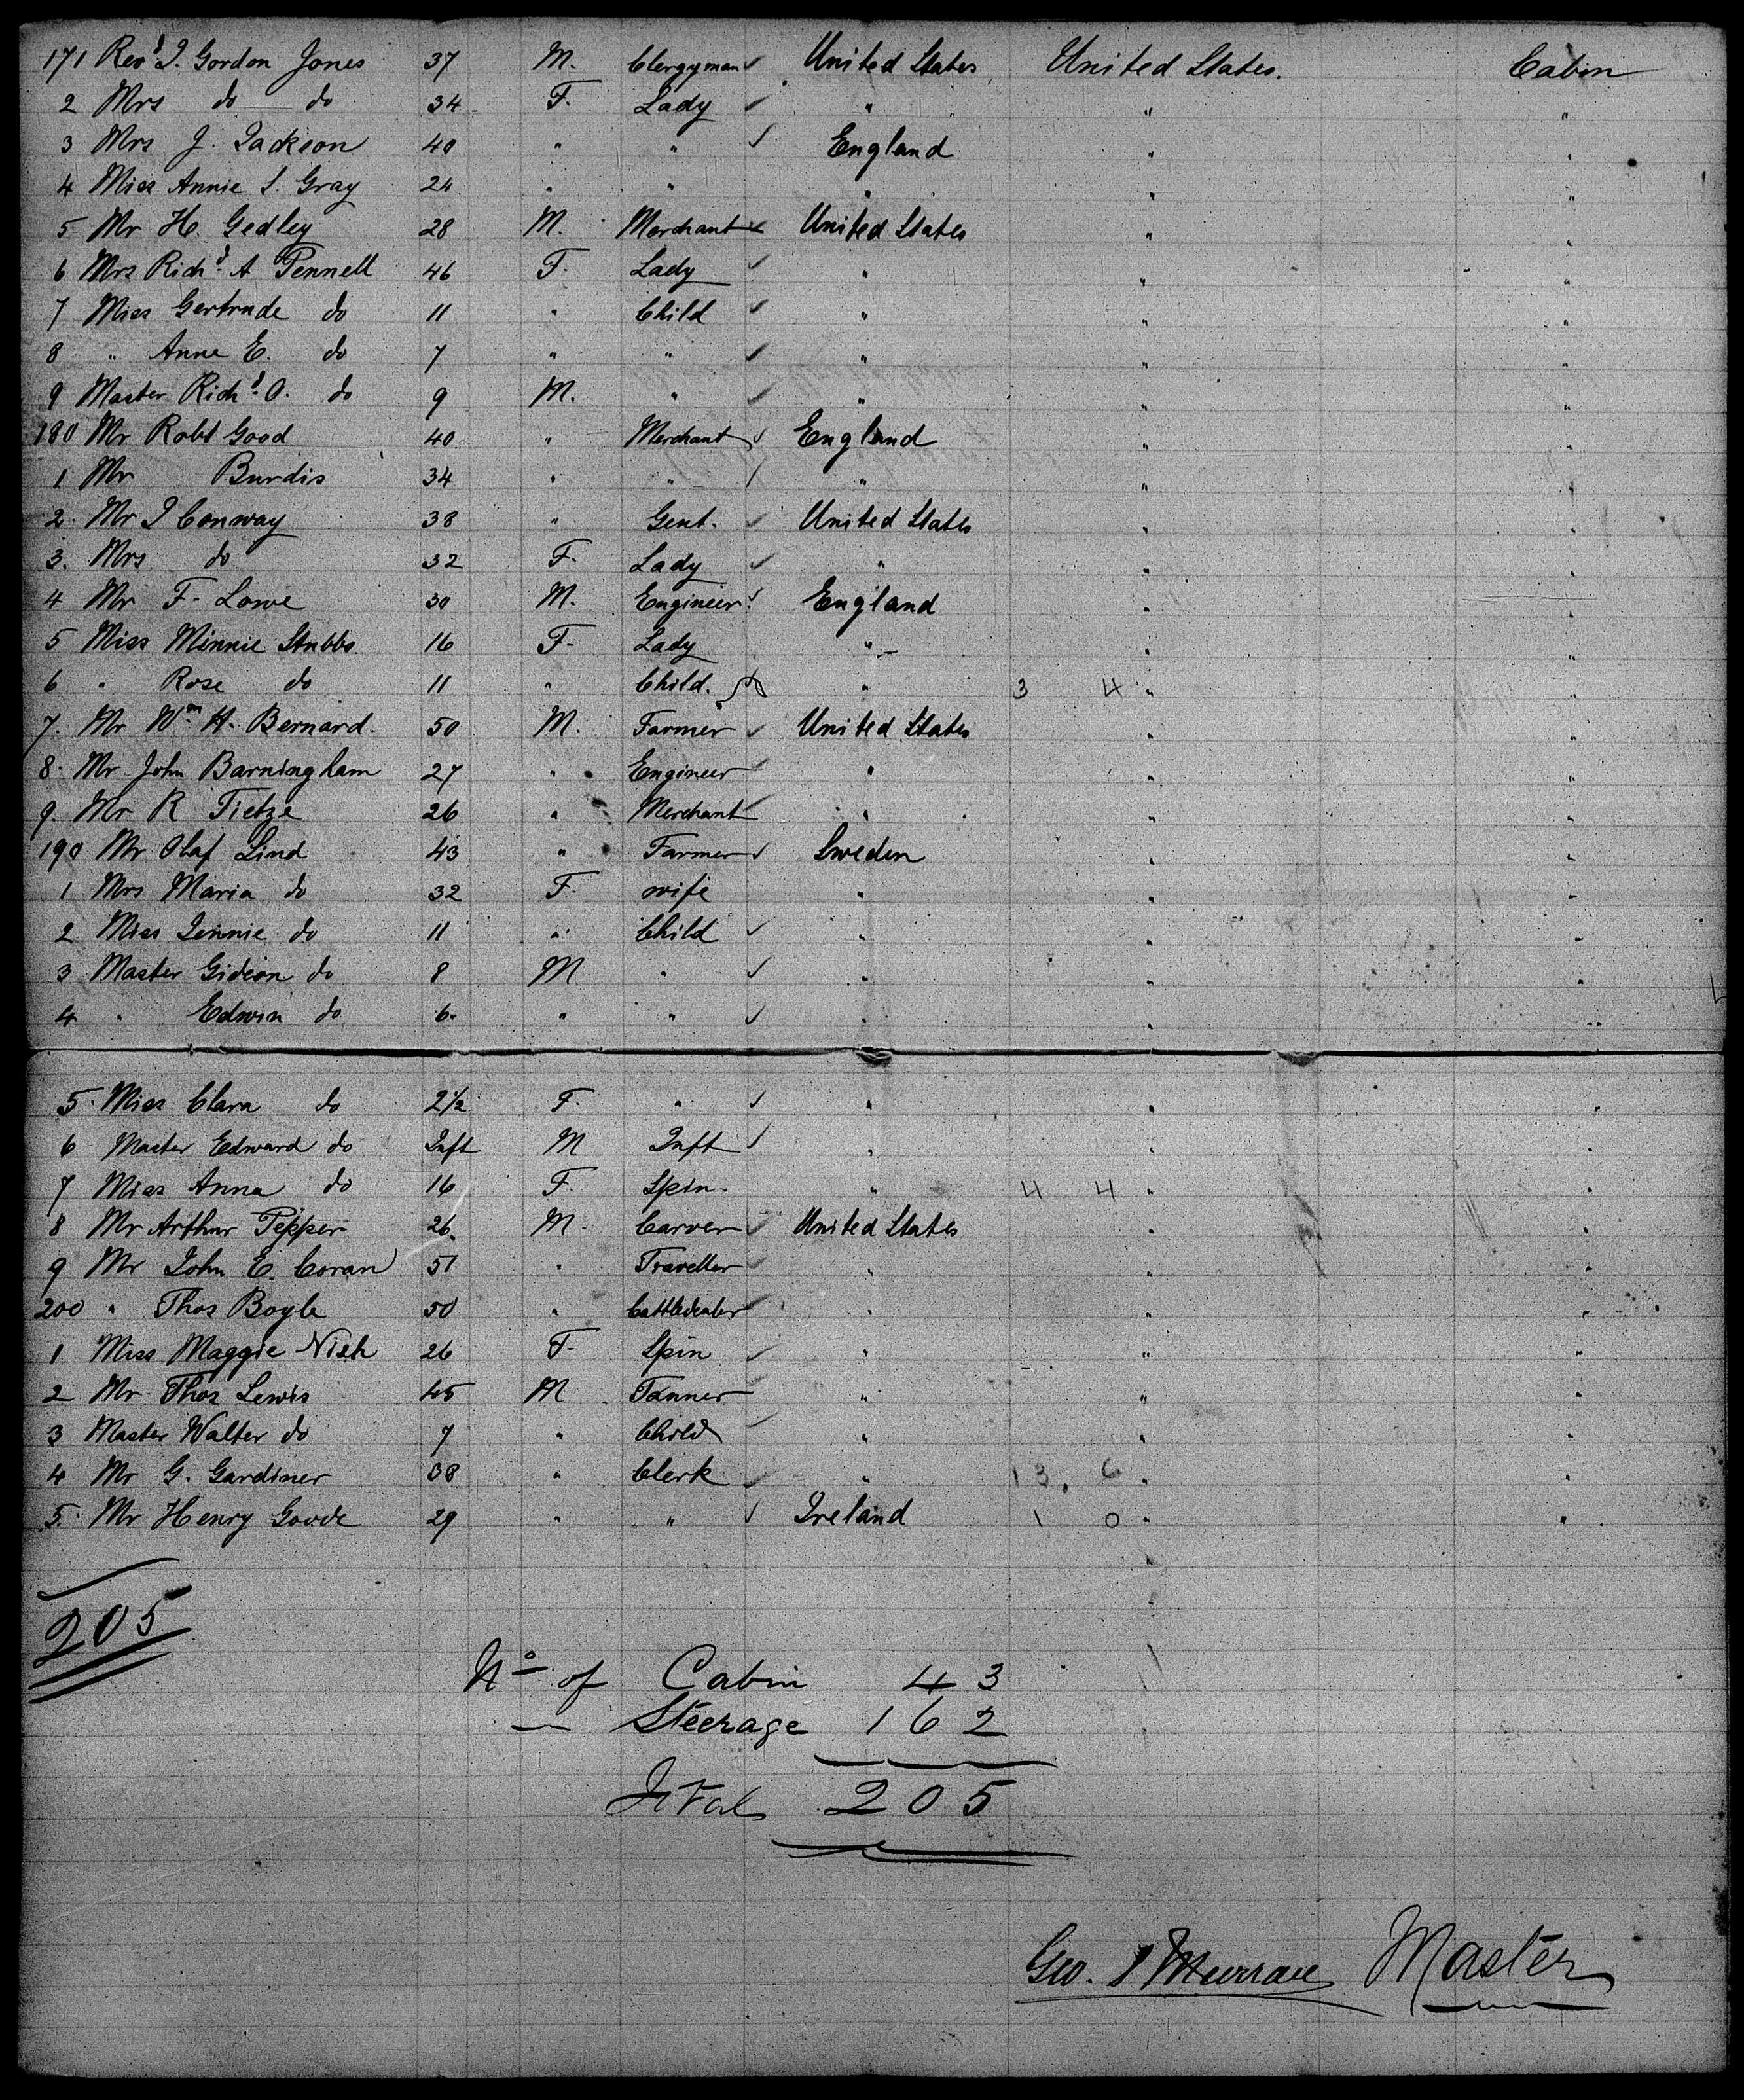 171 Revd J. Gordon Jones 37 M. Clergyman ✓ United States United States. Cabin
2 Mrs do do 34 F. Lady ✓ " " "
3 Mrs J. Jackson 40 " " ✓ England " "
4 Miss Annie S. Gray 24 " " " " "
5 Mr H. Gedley 28 M. Merchant ✓ United States " "
6 Mrs Richd A Pennell 46 F. Lady ✓ " " "
7 Miss Gertrude do 11 " Child ✓ " " "
8 " Anne E. do 7 " " ✓ " " "
9 Master Richd O. do 9 M. " ✓ " " "
180 Mr Robt Good 40 " Merchant ✓ England " "
1 Mr Burdis 34 " " ✓ " " "
2. Mr J Conway 38 " Gent. ✓ United States " "
3. Mrs do 32 F. Lady ✓ " " "
4 Mr F. Lowe 30 M. Engineer ✓ England " "
5 Miss Minnie Stubbs. 16 F. Lady " " "
6 " Rose do 11 " Child. " 3 4 " "
7. Mr Wm H. Bernard. 50 M. Farmer ✓ United States " "
8. Mr John Barningham 27 " Engineer ✓ " " "
9. Mr R Tietze 26 " Merchant ✓ " " "
190 Mr Olaf Lind 43 " Farmer ✓ Sweden " "
1 Mrs Maria do 32 F. wife " " "
2 Miss Jennie do 11 " Child ✓ " " "
3 Master Gideon do 8 M " ✓ " " "
4 " Edwin do 6. " " ✓ " " "
5. Miss Clara do 2½ F. " ✓ " " "
6 Master Edward do Inft M Inft ✓ " " "
7 Miss Anna do 16 F. Spin. " 4 4 " "
8 Mr Arthur Pepper 26. M. Carver ✓ United States " "
9 Mr John E. Coran 51 " Traveller ✓ " " "
200 " Thos Boyle 50 " Cattledealer ✓ " " "
1 Miss Maggie Nish 26 F. Spin ✓ " " "
2 Mr Thos Lewis 45 M Tanner ✓ " " "
3 Master Walter do 7 " Child ✓ " " "
4 Mr G. Gardiner 38 " Clerk ✓ " 13. 6 " "
5. Mr Henry Goode 29 " " ✓ Ireland 1 0 " "
205
No of Cabin 43
— Steerage 162
Total 205
Geo. Murray Master